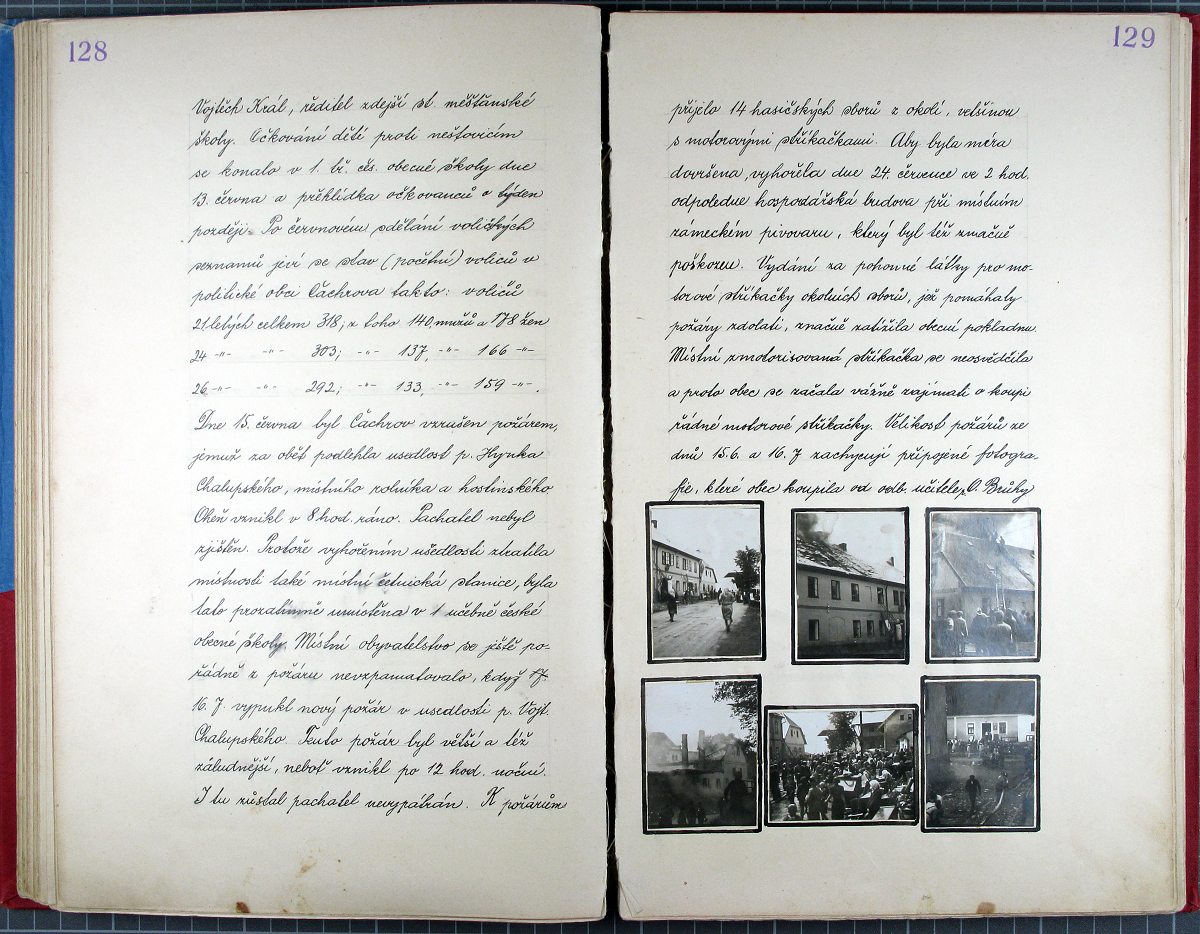 128
Vojtěch Král, ředitel zdejší st. měšťanské
školy. Očkování dětí proti neštovicím
se konalo v 1. tř. čes. obecné školy dne
13. června a přehlídka očkovanců o týden
později. Po červnovém sdělání voličských
seznamů jeví se stav (početní) voličů v
politické obci Čachrova takto: voličů
21letých celkem 318; z toho 140, mužů a 178 žen
24 -"- -"- 303; -"- 137, -"- 166 -"-
26 -"- -"- 292; -"- 133, -"- 159 -"-.
Dne 15. června byl Čachrov vzrušen požárem,
jemuž za oběť podlehla usedlost p. Hynka
Chalupského, místního rolníka a hostinského.
Oheň vznikl v 8 hod. ráno. Pachatel nebyl
zjištěn. Protože vyhořením usedlosti ztratila
místnosti také místní četnická stanice, byla
tato prozatímně umístěna v 1 učebně české
obecné školy. Místní obyvatelstvo se ještě po-
řádně z požáru nevzpamatovalo, když
16. 7. vypukl nový požár v usedlosti p. Vojt.
Chalupského. Tento požár byl větší a též
záludnější, neboť vznikl po 12 hod. noční.
I tu zůstal pachatel nevypátrán. K požárům
129
přijelo 14 hasičských sborů z okolí, většinou
s motorovými stříkačkami. Aby byla míra
dovršena, vyhořela dne 24. července ve 2 hod.
odpoledne hospodářská budova při místním
zámeckém pivovaru, který byl též značně
poškozen. Vydání za pohonné látky pro mo-
torové stříkačky okolních sborů, jež pomáhaly
požáry zdolati, značně zatížila obecní pokladnu.
Místní zmotorisovaná stříkačka se neosvědčila
a proto obec se začala vážně zajímati o koupi
řádné motorové stříkačky. Velikost požárů ze
dnů 15.6. a 16. 7 zachycují připojené fotogra-
fie, které obec koupila od odb. učitele O. Brůhy